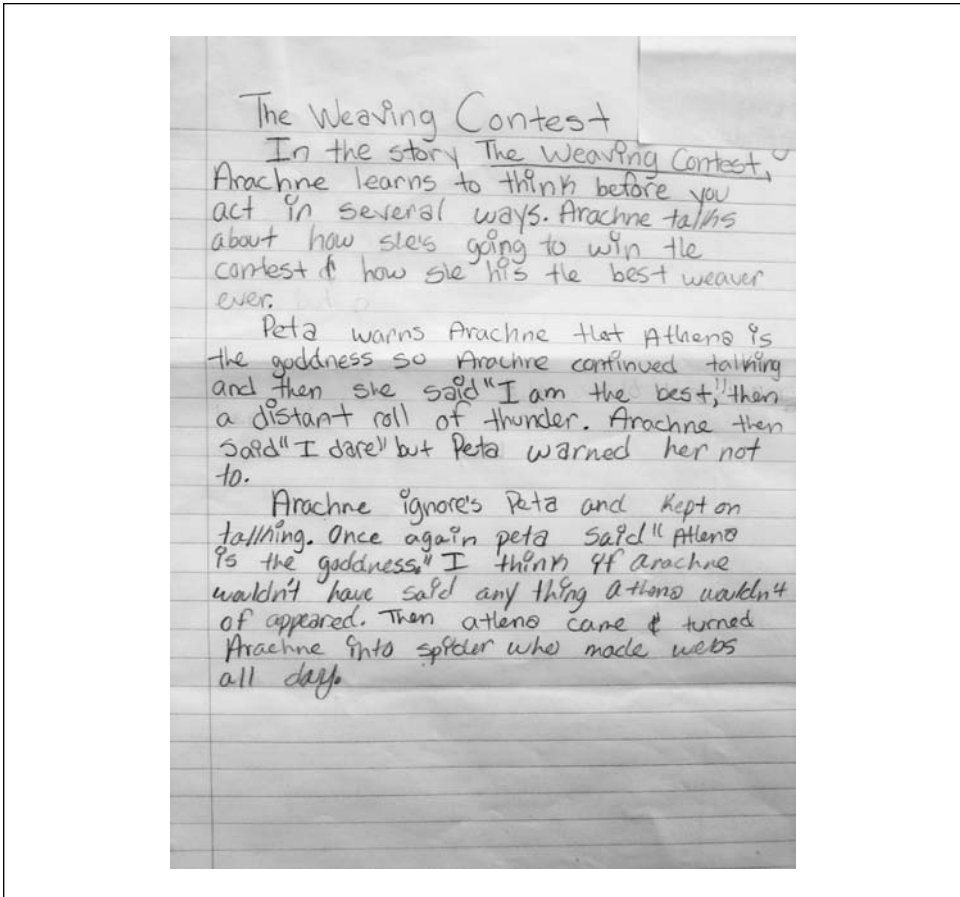 The Weaving Contest
In the story The Weaving Contest,
Arachne learns to think before you
act in several ways. Arachne talks
about how she's going to win the
contest & how she his the best weaver
ever.
Peta warns Arachne that Athena is
the goddness so Arachne continued talking
and then she said "I am the best," then
a distant roll of thunder. Arachne then
said "I dare" but Peta warned her not
to.
Arachne ignore's Peta and kept on
tallking. Once again peta said "Athena
is the goddness." I think if arachne
wouldn't have said any thing athena wouldn't
of appeared. Then athena came & turned
Arachne into spider who made webs
all day.